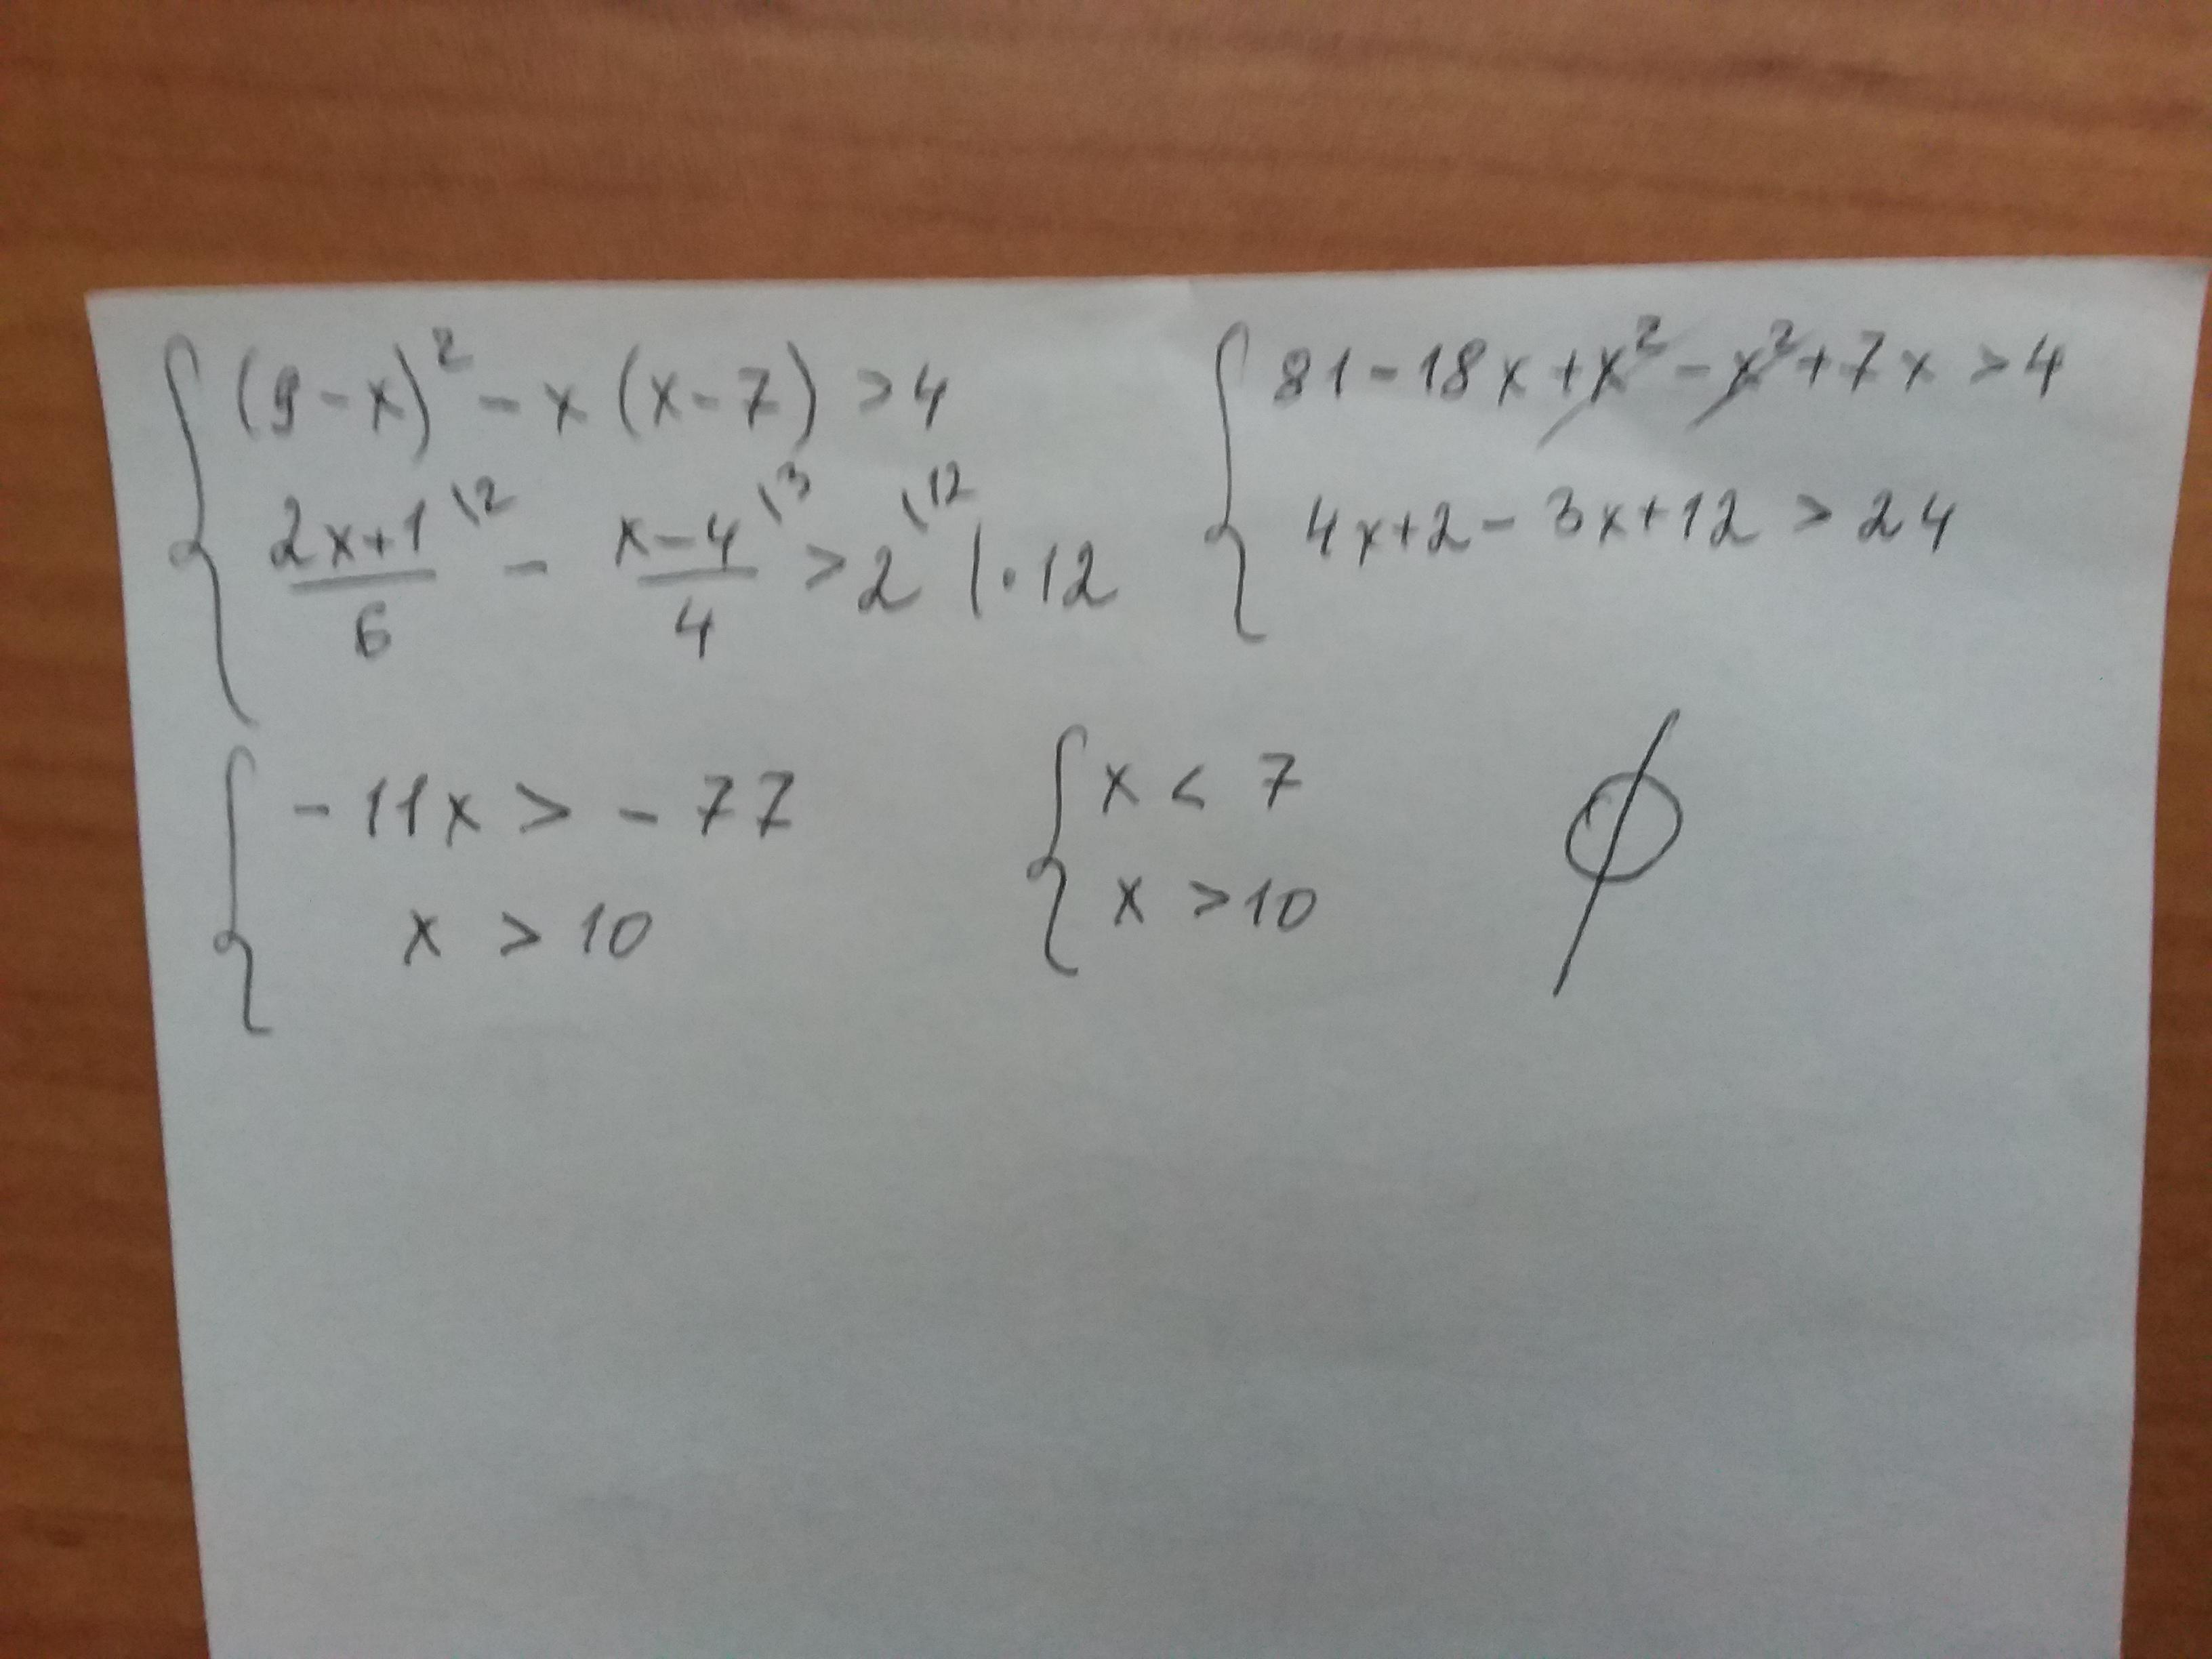 (9-x)² - x(x-7) > 4
(2x+1)/6 \2 - (x-4)/4 \3 > 2 \12 | · 12
81-18x+x²-x²+7x > 4
4x+2-3x+12 > 24
-11x > -77
x > 10
x < 7
x > 10
∅